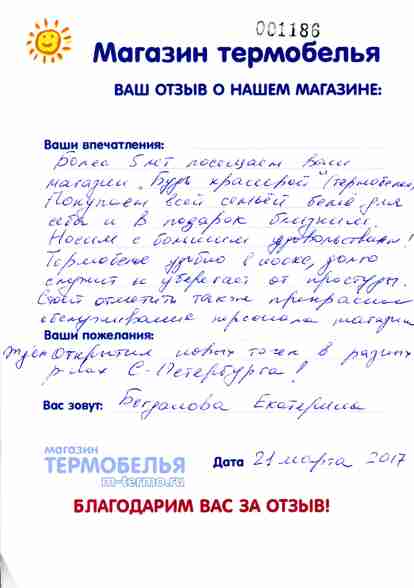 001186
Магазин термобелья
ВАШ ОТЗЫВ О НАШЕМ МАГАЗИНЕ:
Ваши впечатления:
Более 5 лет посещаем Ваш
магазин "Будь красивой" (термобелье)
Покупаем всей семьёй бельё для
себя и в подарок близким.
Носим с большим удовольствием!
Термобелье удобно в носке, долго
служит и уберегает от простуды.
Стоит отметить также прекрасное
обслуживание персонала магазина
Ваши пожелания:
Ждем открытия новых точек в разных
р-нах С-Петербурга!
Вас зовут: Богданова Екатерина
магазин
ТЕРМОБЕЛЬЯ
m-termo.ru
Дата 21 марта 2017
БЛАГОДАРИМ ВАС ЗА ОТЗЫВ!